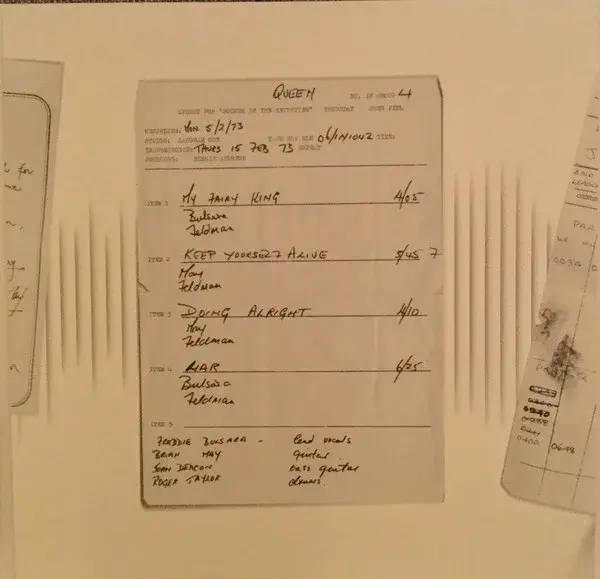 QUEEN NO. IN GROUP 4
SHEET FOR "SOUNDS OF THE SEVENTIES" THURSDAY JOHN PEEL
RECORDING: MON 5/2/73
STUDIO: LANGHAM ONE TAPE NO: BLN 06/IN1042 TIME:
TRANSMISSION: THURS 15 FEB 73 REPEAT
PRODUCER: BERNIE ANDREWS
ITEM 1 MY FAIRY KING 4/05
Bulsara
Feldman
ITEM 2 KEEP YOURSELF ALIVE 3/45 7
May
Feldman
ITEM 3 DOING ALRIGHT 4/10
May
Feldman
ITEM 4 LIAR 6/25
Bulsara
Feldman
ITEM 5
FREDDIE BULSARA - lead vocals
BRIAN MAY guitar.
JOHN DEACON bass guitar
ROGER TAYLOR drums.
for
PAR
0400 0698